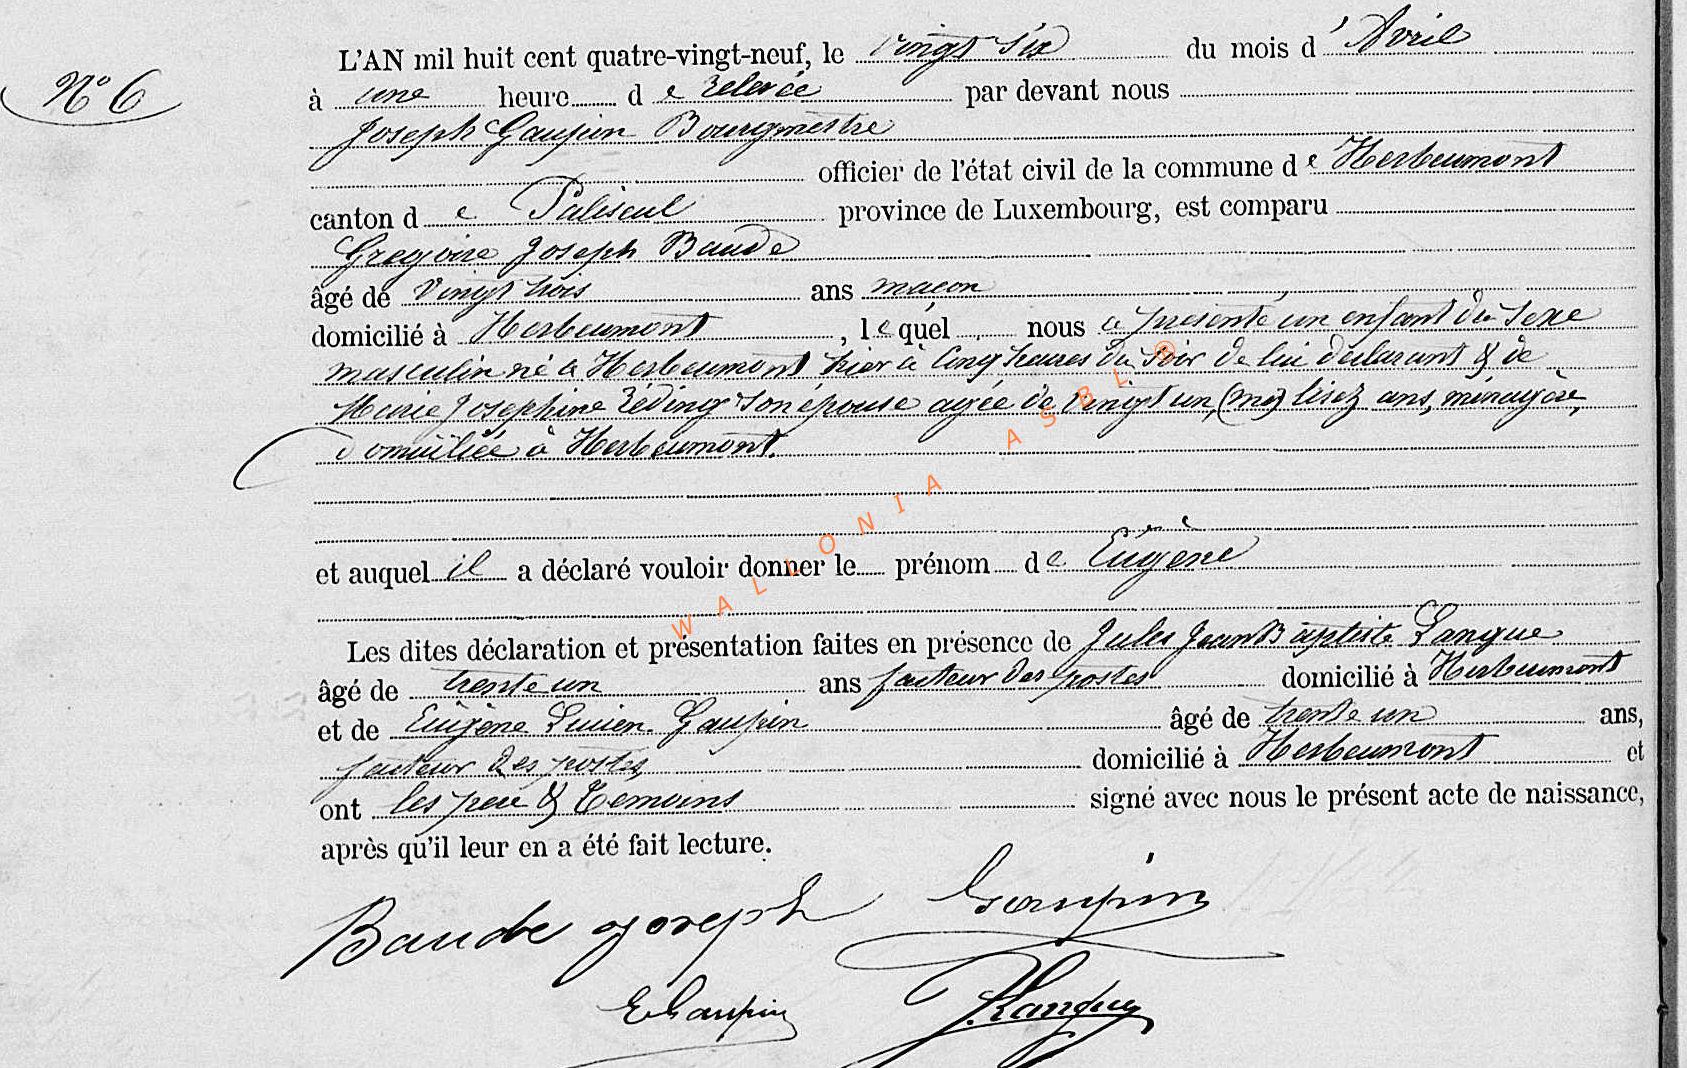 L'AN mil huit cent quatre-vingt-neuf, le vingt six du mois d'Avril
N° 6
à une heure d e relevée par devant nous
Joseph Gaupin Bourgmestre
officier de l'état civil de la commune d e Herbeumont
canton d e Paliseul province de Luxembourg, est comparu
Gregoire Joseph Baude
âgé de vingt trois ans maçon
domicilié à Herbeumont, le quel nous a présenté un enfant du sexe
masculin né à Herbeumont hier à cinq heures du soir de lui déclarant & de
Marie Josephine Réding son épouse agée de vingt un, lisez ans, ménagère,
domiciliée à Herbeumont.
et auquel il a déclaré vouloir donner le prénom d e Eugène
Les dites déclaration et présentation faites en présence de Jules Jean Baptiste Langue
âgé de trente un ans facteur des postes domicilié à Herbeumont
et de Eugène Lucien Gaupin âgé de trente un ans,
facteur des postes domicilié à Herbeumont et
ont les père & témoins signé avec nous le présent acte de naissance,
après qu'il leur en a été fait lecture.
Baude Joseph Gaupin
E Gaupin
WALLONIA ASBL ®